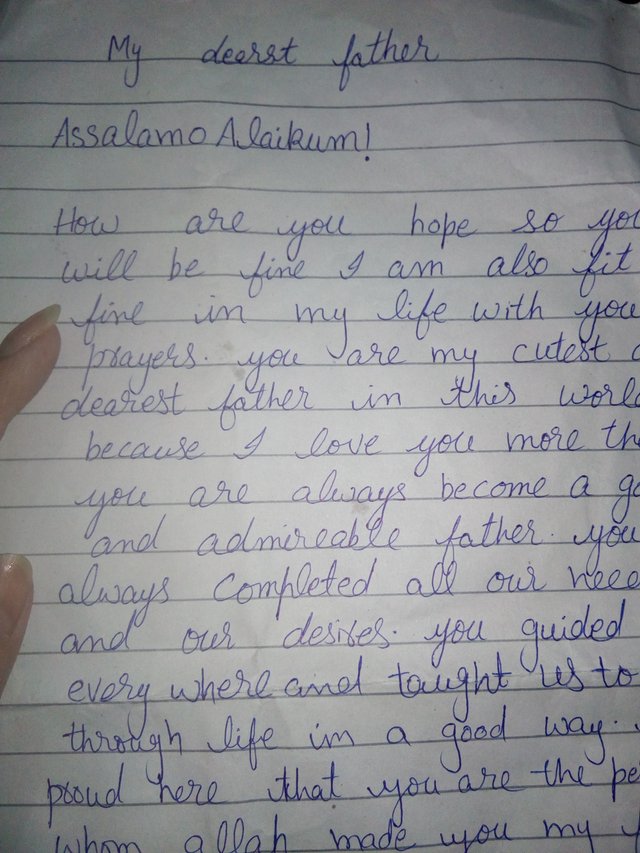 My dearst father
Assalamo Alaikum!
How are you hope so you
will be fine I am also fit
fine in my life with you
prayers. you are my cutest
dearest father in this world
because I love you more
you are always become a
and admireable father. you
always completed all our
and our desires. you guided
every where and taught us to
through life in a good way.
proud here that you are the
whom allah made you my